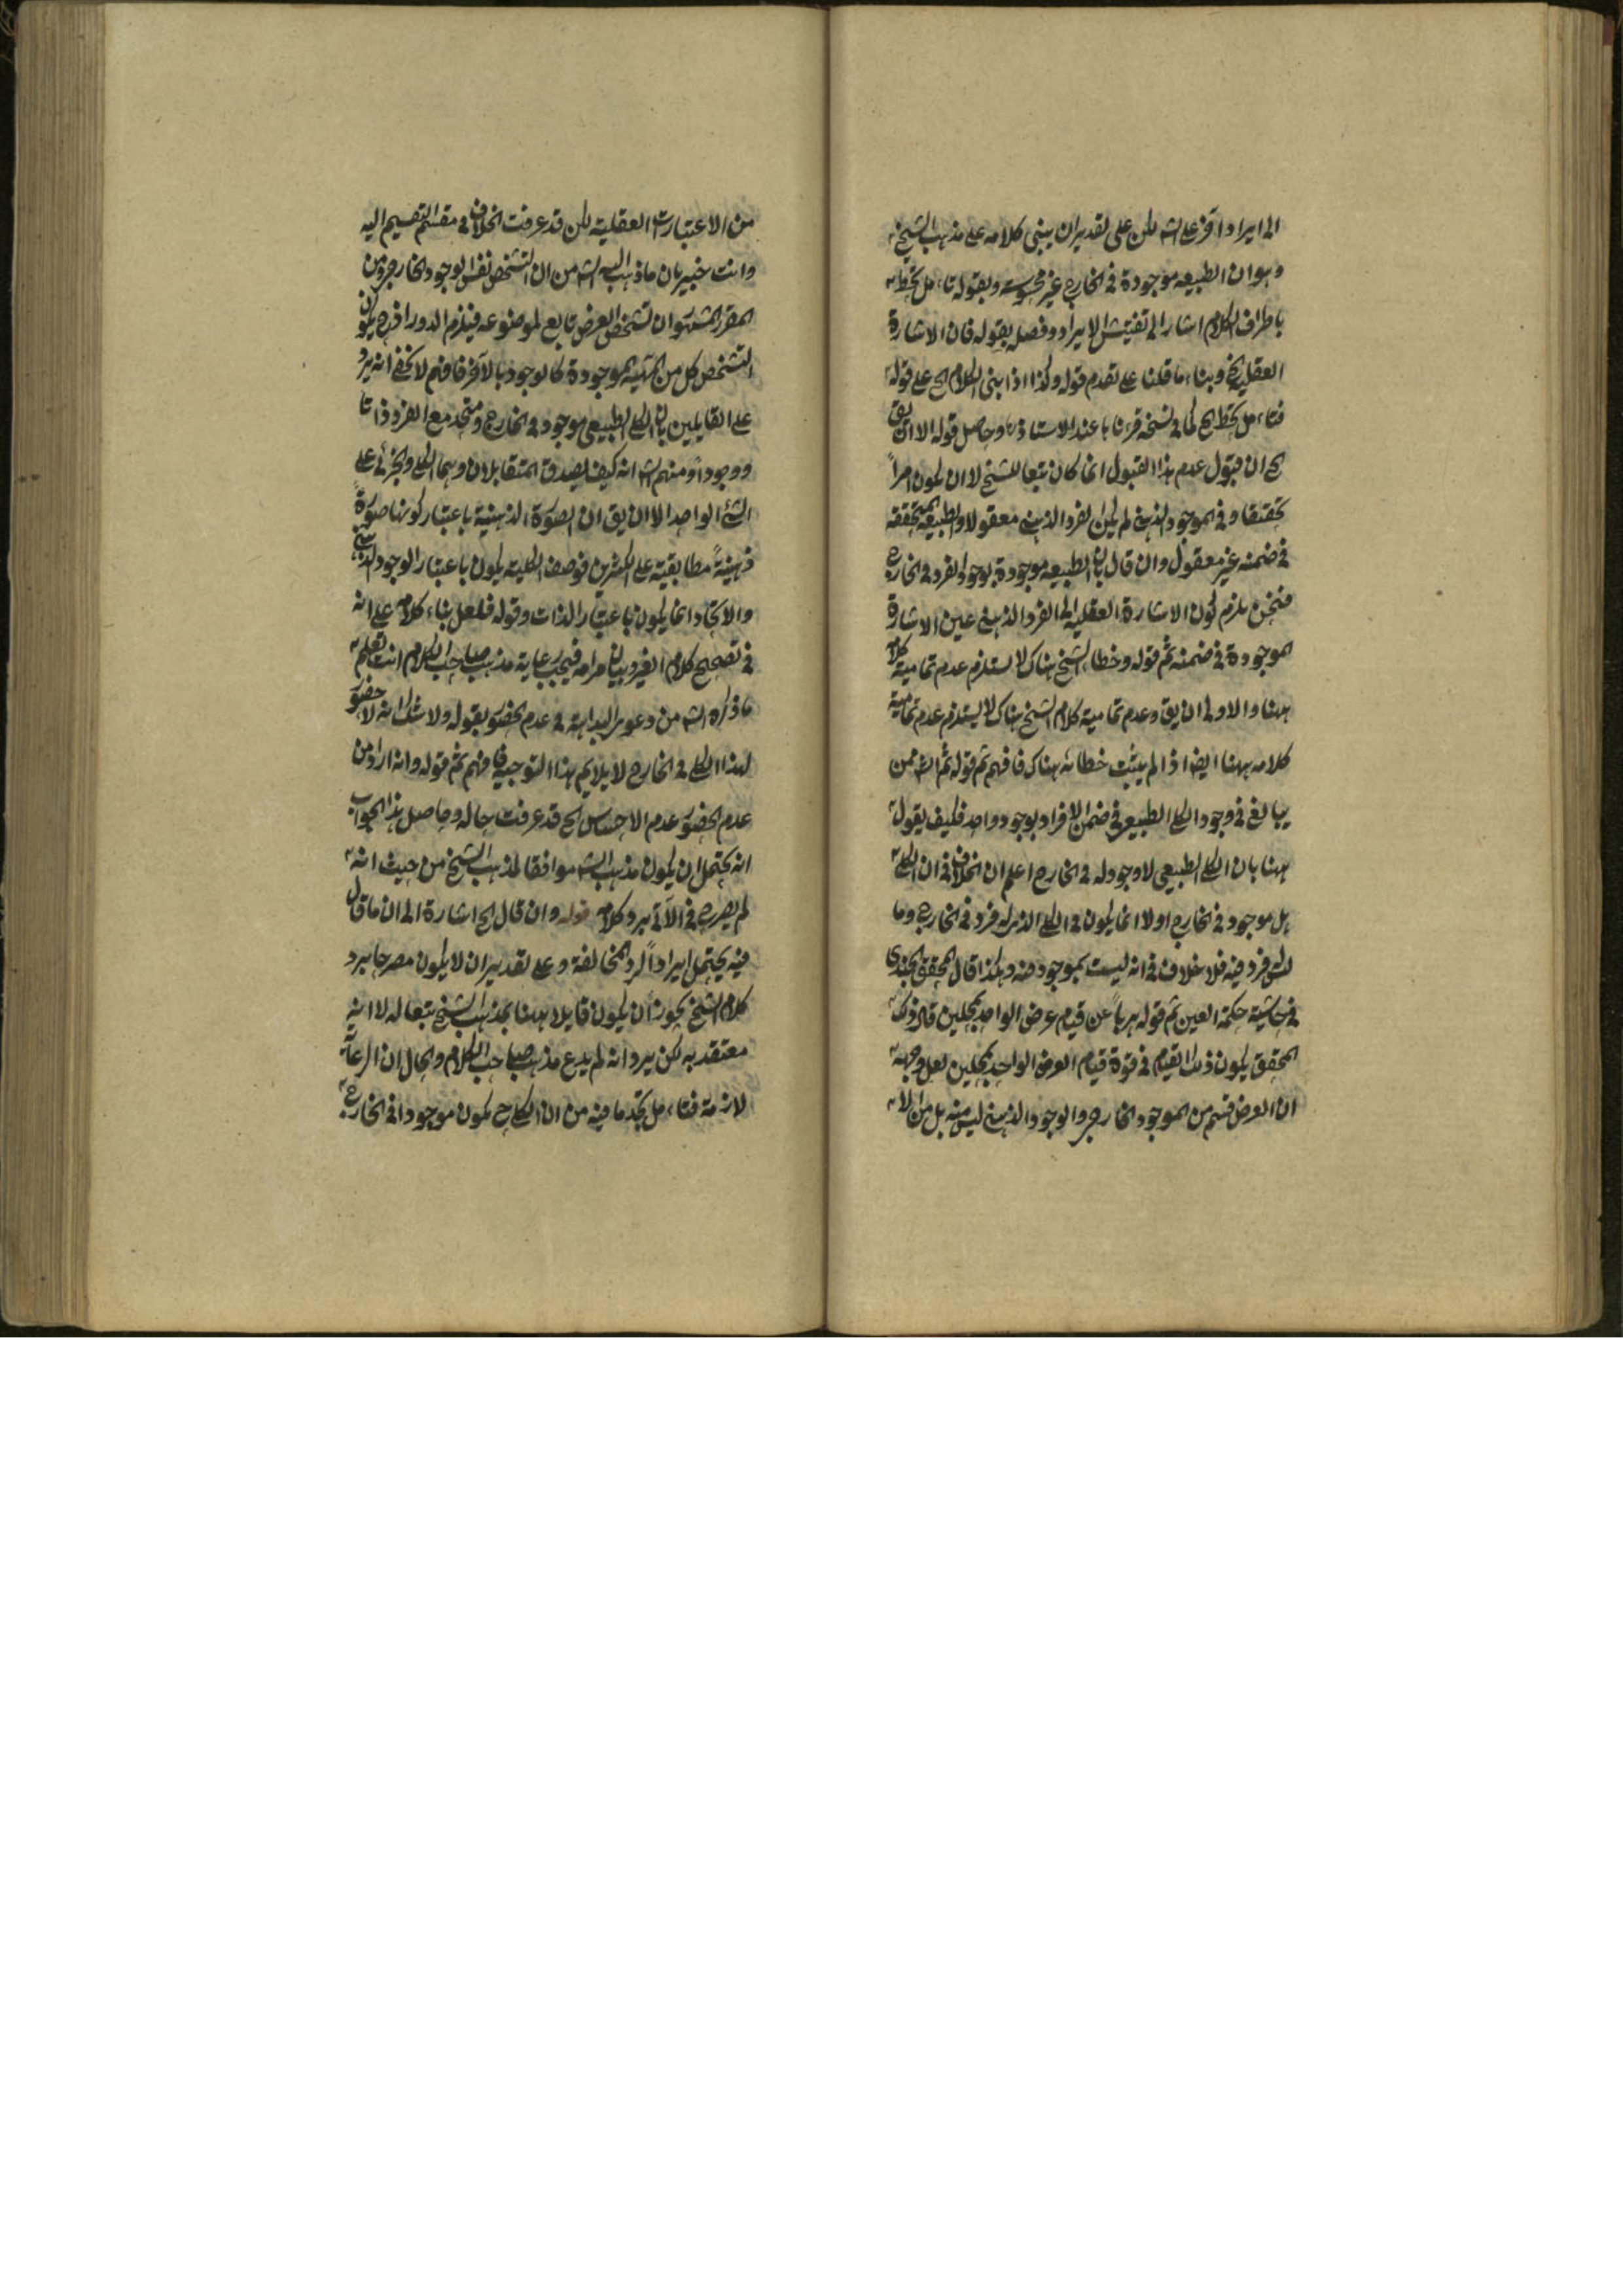 الى ايراد آخر على الشه لكن على تقدير ان يبنى كلامه على مذهب الشيخ
وهو ان الطبيعه موجودة فى الخارج غير محسوسه وبقوله تأمل تحط
باطراف الكلام اشار الى تفتيش الايراد وفصله بقوله فان الاشارة
العقلية الخ وبناء ما قلنا على تقدم قوله وكذا اذا بنى الكلام الخ على قوله
فتأمل تحط الخ كما فى نسخة قرءنا بها عند الاستاذ وحاصل قوله الا ان يق
الخ ان قبول عدم هذا القبول انما كان تبعا للشيخ لا ان يكون امراً
تحقيقا وفى الموجود الذهنى لم يكن الفرد الذهنى معقولا والطبيعة المتحققة
فى ضمنه غير معقول وان قال بان الطبيعه موجودة بوجود الفرد فى الخارج
فنحن نلزم كون الاشارة العقلية الى الفرد الذهنى عين الاشارة
الموجودة فى ضمنه ثم قوله وخطاء الشيخ هناك لا يستلزم عدم تمامية كلامه
ههنا والاولى ان يق وعدم تمامية كلام الشيخ هناك لا يستلزم عدم تمامية
كلامه ههنا ايضا اذ لم يثبت خطائه هناك فافهم ثم قوله ثم الشه ممن
يبالغ فى وجود الكلى الطبيعى فى ضمن الافراد بوجود واحد فكيف يقول
ههنا بان الكلى الطبيعى لا وجود له فى الخارج اعلم ان الخلاف فى ان الكلى
هل موجود فى الخارج او لا انما يكون فى الكلى الذى له فرد فى الخارج وما
ليس فرد فيه فلا خلاف فى انه ليست بموجود منه وهكذا قال المحقق الجندى
فى حاشية حكمة العين ثم قوله هرباً عن قيام عرض الواحد بمحلين قال ذلك
المحقق يكون ذلك القيام فى قوة قيام العرض الواحد بمحلين لعل وجهه
ان العرض قسم من الموجود الخارجى والوجود الذهنى ليس منه بل من الا
من الاعتبارت العقلية لكن قد عرفت الخلاف فى مقسم التقسيم اليه
وانت خبير بان ما ذهب اليه الشه من ان التشخص نفس الوجود الخارجى ومن
المقرر المشهور ان تشخص العرض تابع لموضوعه فيلزم الدور اذ ح يكون
التشخص كل من المهية الموجودة كالوجود بالآخر فافهم لا يخفى انه يرد
على القايلين بان الكلى الطبيعى موجود فى الخارج ومتحد مع الفرد ذاتا
ووجودا ومنهم الشه انه كيف يصدق المتقابلان وهما الكلى والجزئى على
الشئ الواحد الا ان يق ان الصورة الذهنية باعتبار كونها صورة
ذهنية مطابقية على الكثيرين فوصف الكلية يكون باعتبار الوجود الذهنى
والاتحاد انما يكون باعتبار الذات وقوله فلعل بناء كلامه على انه
فى تصحيح كلام الغير وبيان مرامه فيجب رعاية مذهب صاحب الكلام انت تعلم
ما ذكره الشه من دعوى البداهة فى عدم الحضور بقوله ولا شك انه لا حضور
لهذا الكلى فى الخارج لا يلايم هذا التوجيه فافهم ثم قوله وانه اراد من
عدم الحضور عدم الاحساس الخ قد عرفت حاله وحاصل هذا الجواب
انه يحتمل ان يكون مذهب الشه موافقا لمذهب الشيخ من حيث انه
لم يصرح فى الآتى برد كلامه قوله وان قال الخ اشارة الى ان ما قال
فيه يحتمل ايراداً لرد المخالفة وعلى تقدير ان لا يكون مصرحا برد
كلام الشيخ يجوز ان يكون قايلا ههنا بمذهب الشيخ تبعا له لا انه
معتقد به لكن يرد انه لم يدع مذهب صاحب الكلام والحال ان الرعاية
لازمة فتأمل تجد ما فيه من ان الكلى ح يكون موجودا فى الخارج